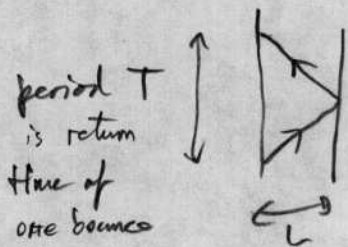 period T
is return
time of
one bounce
L